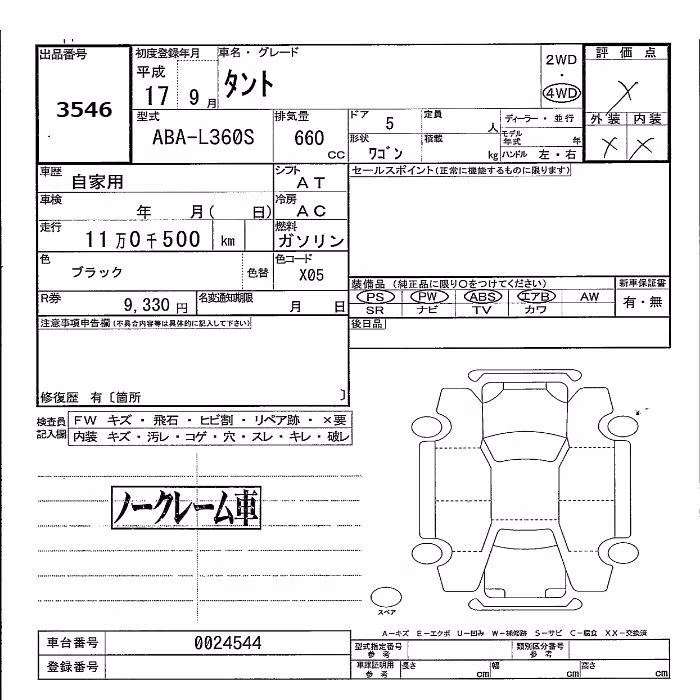 出品番号
3546
初度登録年月
平成
17 9 月
車名・グレード
タント
2WD
・
4WD
評価点
X
外装 内装
X X
型式
ABA-L360S
排気量
660
CC
ドア
5
定員
人
ディーラー・並行
モデル年式
年
形状
ワゴン
積載
kg
ハンドル 左・右
車歴
自家用
シフト
AT
セールスポイント(正常に機能するものに限ります)
車検
年 月( 日)
冷房
AC
走行
11万0千500 km
燃料
ガソリン
色
ブラック
色替
色コード
X05
装備品(純正品に限り○をつけてください)
PS PW ABS エアB AW
SR ナビ TV カワ
新車保証書
有・無
R券
9,330 円
名変通知期限
月 日
後日品
注意事項申告欄(不具合内容等は具体的に記入して下さい)
修復歴 有〔箇所 〕
検査員
記入欄
FW キズ・飛石・ヒビ割・リペア跡・×要
内装 キズ・汚レ・コゲ・穴・スレ・キレ・破レ
ノークレーム車
スペア
A-キズ E-エクボ U-凹み W-補修跡 S-サビ C-腐食 XX-交換済
車台番号
0024544
登録番号
型式指定番号
参考
類別区分番号
参考
車庫証明用
参考
長さ cm
幅 cm
高さ cm